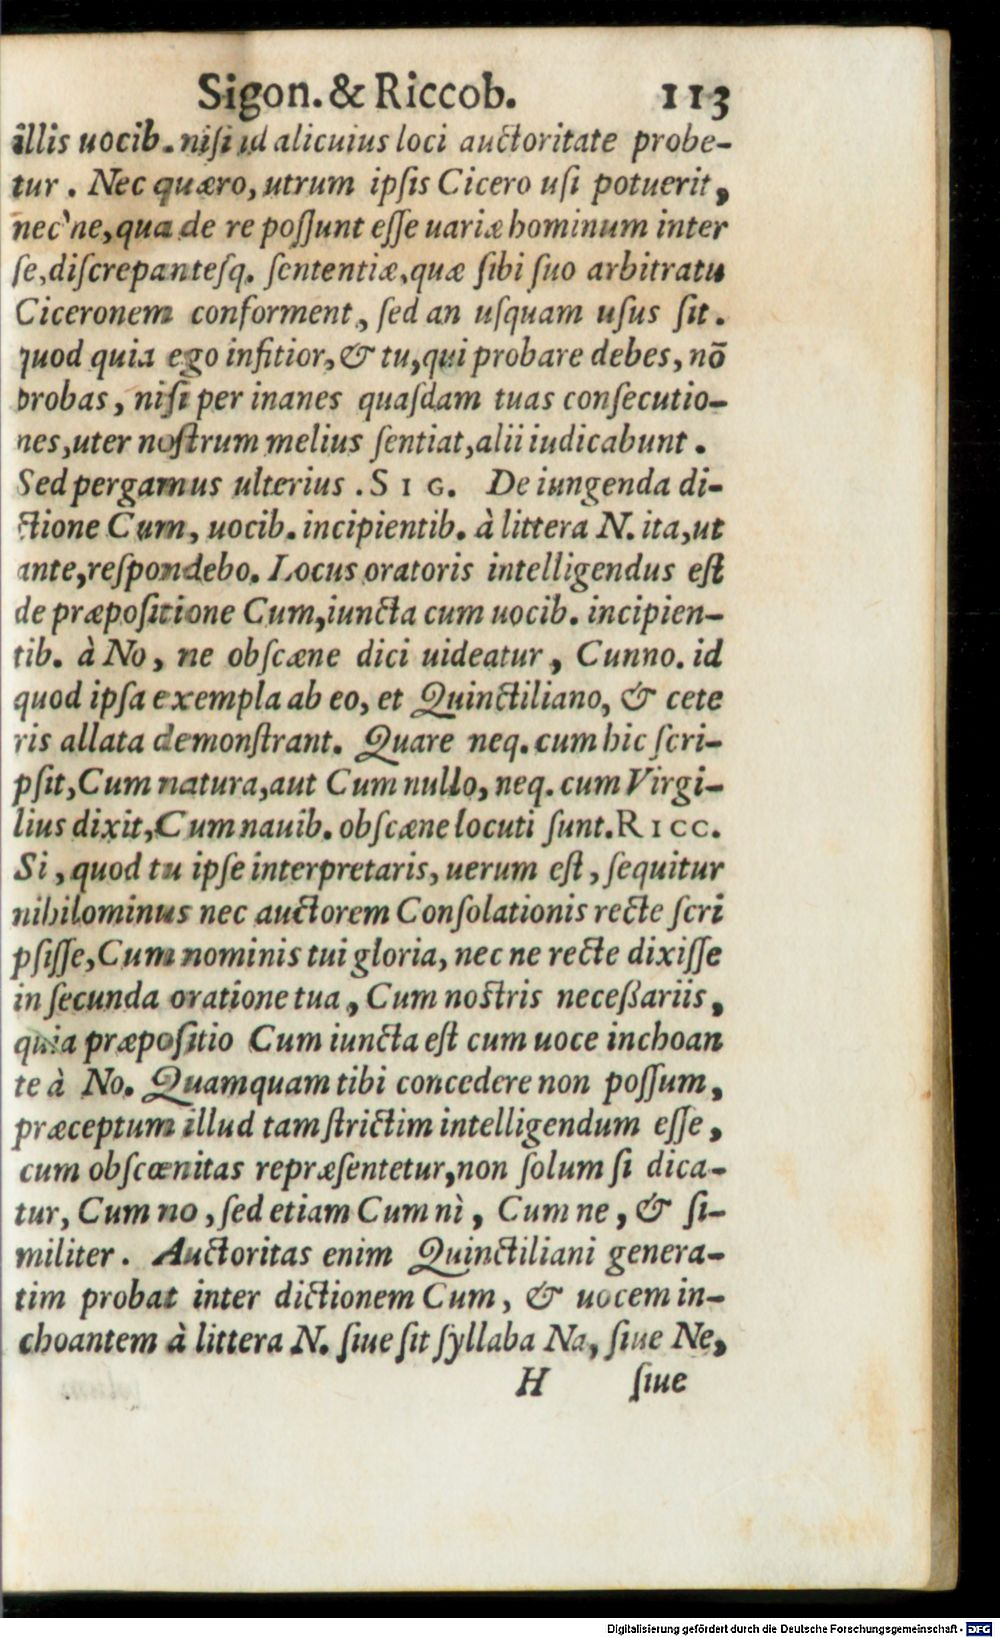 Sigon. & Riccob. 113
illis uocib. niſi id alicuius loci auctoritate probe-
tur. Nec quæro, utrum ipſis Cicero uſi potuerit,
nec'ne, qua de re poſſunt eſſe uariæ hominum inter
ſe, diſcrepanteſq. ſententiæ, quæ ſibi ſuo arbitratu
Ciceronem conforment, ſed an uſquam uſus ſit.
quod quia ego infitior, & tu, qui probare debes, nō
probas, niſi per inanes quaſdam tuas conſecutio-
nes, uter noſtrum melius ſentiat, alii iudicabunt.
Sed pergamus ulterius. SIG. De iungenda di-
ctione Cum, uocib. incipientib. à littera N. ita, ut
ante, reſpondebo. Locus oratoris intelligendus eſt
de præpoſitione Cum, iuncta cum uocib. incipien-
tib. à No, ne obſcæne dici uideatur, Cunno. id
quod ipſa exempla ab eo, et Quinctiliano, & cete
ris allata demonſtrant. Quare neq. cum hic ſcri-
pſit, Cum natura, aut Cum nullo, neq. cum Virgi-
lius dixit, Cum nauib. obſcæne locuti ſunt. RICC.
Si, quod tu ipſe interpretaris, uerum eſt, ſequitur
nihilominus nec auctorem Conſolationis recte ſcri
pſiſſe, Cum nominis tui gloria, nec ne recte dixiſſe
in ſecunda oratione tua, Cum noſtris neceßariis,
quia præpoſitio Cum iuncta eſt cum uoce inchoan
te à No. Quamquam tibi concedere non poſſum,
præceptum illud tam ſtrictim intelligendum eſſe,
cum obſcœnitas repræſentetur, non ſolum ſi dica-
tur, Cum no, ſed etiam Cum nì, Cum ne, & ſi-
militer. Auctoritas enim Quinctiliani genera-
tim probat inter dictionem Cum, & uocem in-
choantem à littera N. ſiue ſit ſyllaba Na, ſiue Ne,
H ſiue
Digitalisierung gefördert durch die Deutsche Forschungsgemeinschaft - DFG